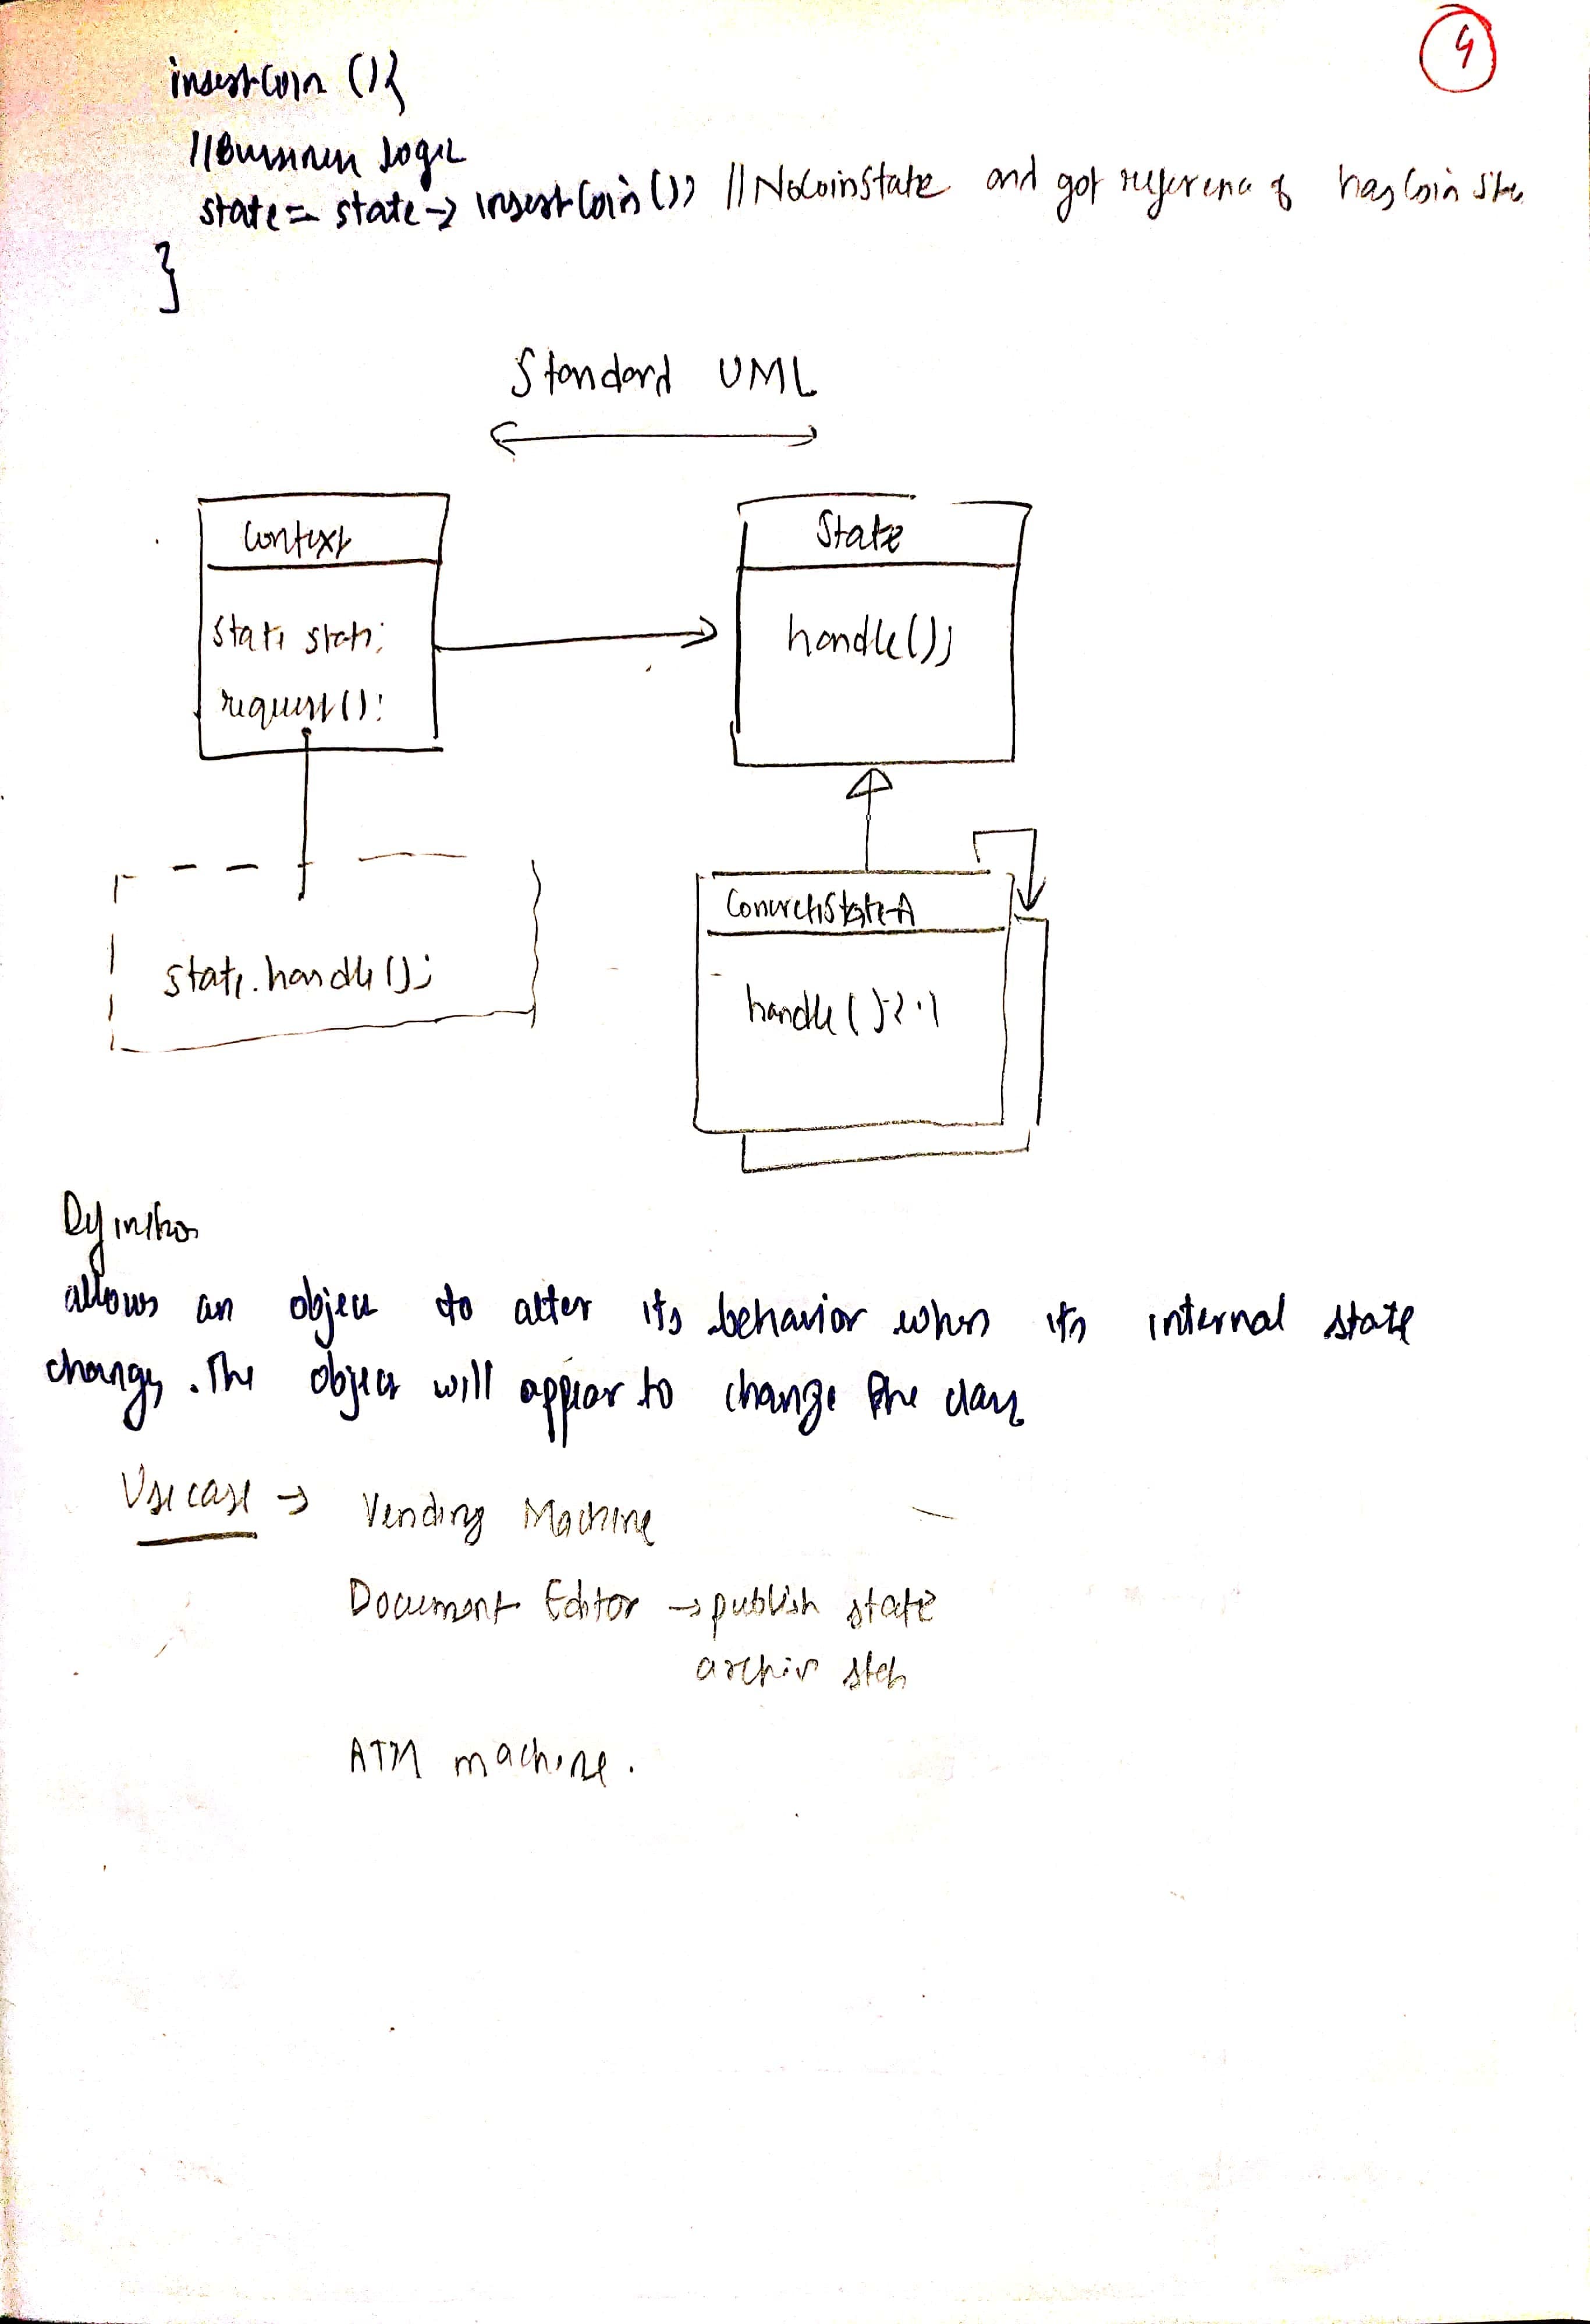 4
insertCoin (){
//Business Logic
state = state-> insertCoin(); //NoCoinState and got reference of hasCoin State
}
Standard UML
Context
State state;
request();
State
handle();
state.handle();
ConcreteStateA
handle() { }
Definition
allows an object to alter its behavior when its internal state
changes. The object will appear to change the class
Use case → Vending Machine
Document Editor → publish state
archive state
ATM machine.